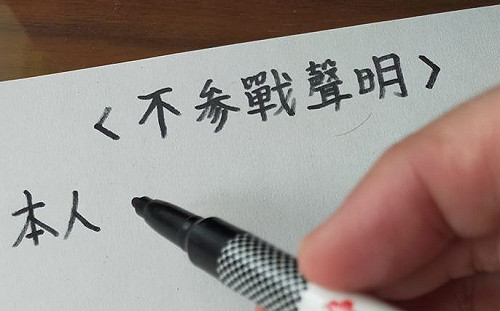 〈不参戰聲明〉
本人